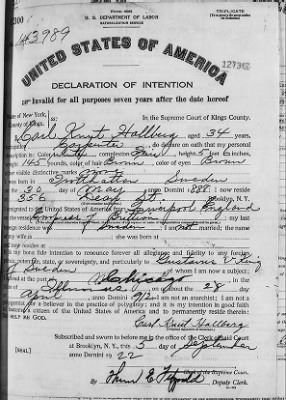 200
Form 2203
TRIPLICATE
U. S. DEPARTMENT OF LABOR
NATURALIZATION SERVICE
No. 143989
UNITED STATES OF AMERICA
DECLARATION OF INTENTION
Invalid for all purposes seven years after the date hereof
State of New York,
County of Kings, ss:
In the Supreme Court of Kings County.
I, Carl Knut Hallberg, aged 34 years,
occupation Carpenter, do declare on oath that my personal
description is: Color white, complexion Fair, height 5 feet inches,
weight 145 pounds, color of hair Brown, color of eyes Brown
other visible distinctive marks none
I was born in Sweden
on the 30 day of May, anno Domini 1888; I now reside
at 356 Dean St., Brooklyn, N.Y.
I emigrated to the United States of America from Liverpool England
on the vessel Empress of Britain; my last
foreign residence was Sweden; I am not married; the name
of my wife is; she was born at
and now resides at
It is my bona fide intention to renounce forever all allegiance and fidelity to any foreign
prince, potentate, state, or sovereignty, and particularly to Gustavus V. King
of Sweden, of whom I am now a subject;
I arrived at the port of Chicago, in the
State of Illinois, on or about the 28 day
of April, anno Domini 1912; I am not an anarchist; I am not a
polygamist nor a believer in the practice of polygamy; and it is my intention in good faith
to become a citizen of the United States of America and to permanently reside therein:
SO HELP ME GOD.
Carl Knut Hallberg
Subscribed and sworn to before me in the office of the Clerk of said Court
at Brooklyn, N. Y., this 5 day of September
anno Domini 1922
[SEAL]
Clerk of the Supreme Court.
By Deputy Clerk.